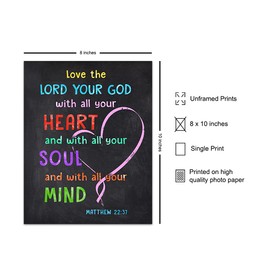 8 inches
love the
LORD YOUR GOD
with all your
HEART
and with all your
SOUL
and with all your
MIND
MATTHEW 22:37
10 inches
Unframed Prints
8 x 10 inches
Single Print
Printed on high
quality photo paper